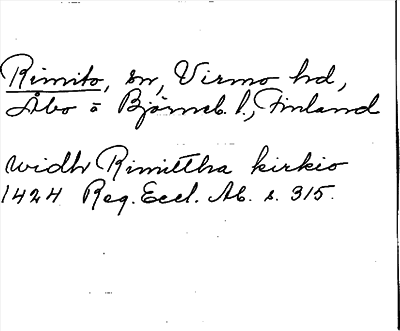 Rimito, sn, Virmo hd,
Åbo o Björneb. l., Finland
widh Rimittha kirkio
1424 Reg. Eccl. Ab. s. 315.